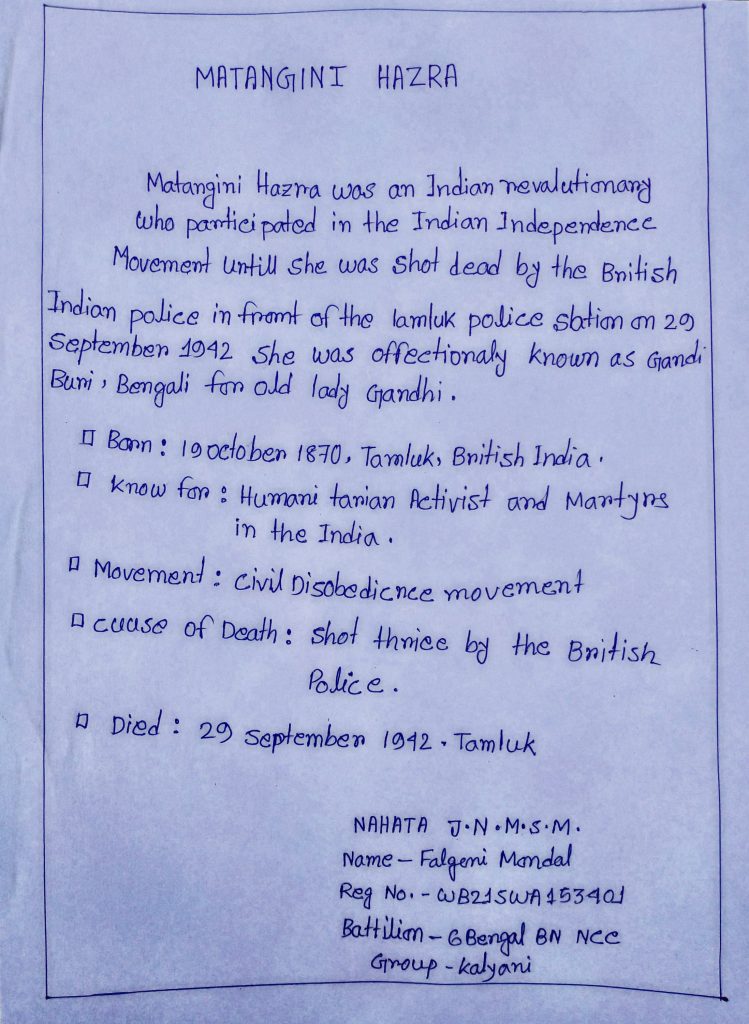 MATANGINI HAZRA
Matangini Hazra was an Indian revalutionary
who participated in the Indian Independence
Movement untill she was shot dead by the British
Indian police in front of the Tamluk police station on 29
September 1942 She was offectionaly known as Gandi
Buri, Bengali for old lady Gandhi.
□ Born : 19 october 1870, Tamluk, British India.
□ Know for : Humani tarian Activist and Martyrs
in the India.
□ Movement : civil Disobedicnce movement
□ cuuse of Death : shot thrice by the British
Police.
□ Died : 29 september 1942 . Tamluk
NAHATA J.N.M.S.M.
Name – Falgeni Mondal
Reg No. - WB21SWA153401
Battilion – 6 Bengal BN NCC
Group - Kalyani